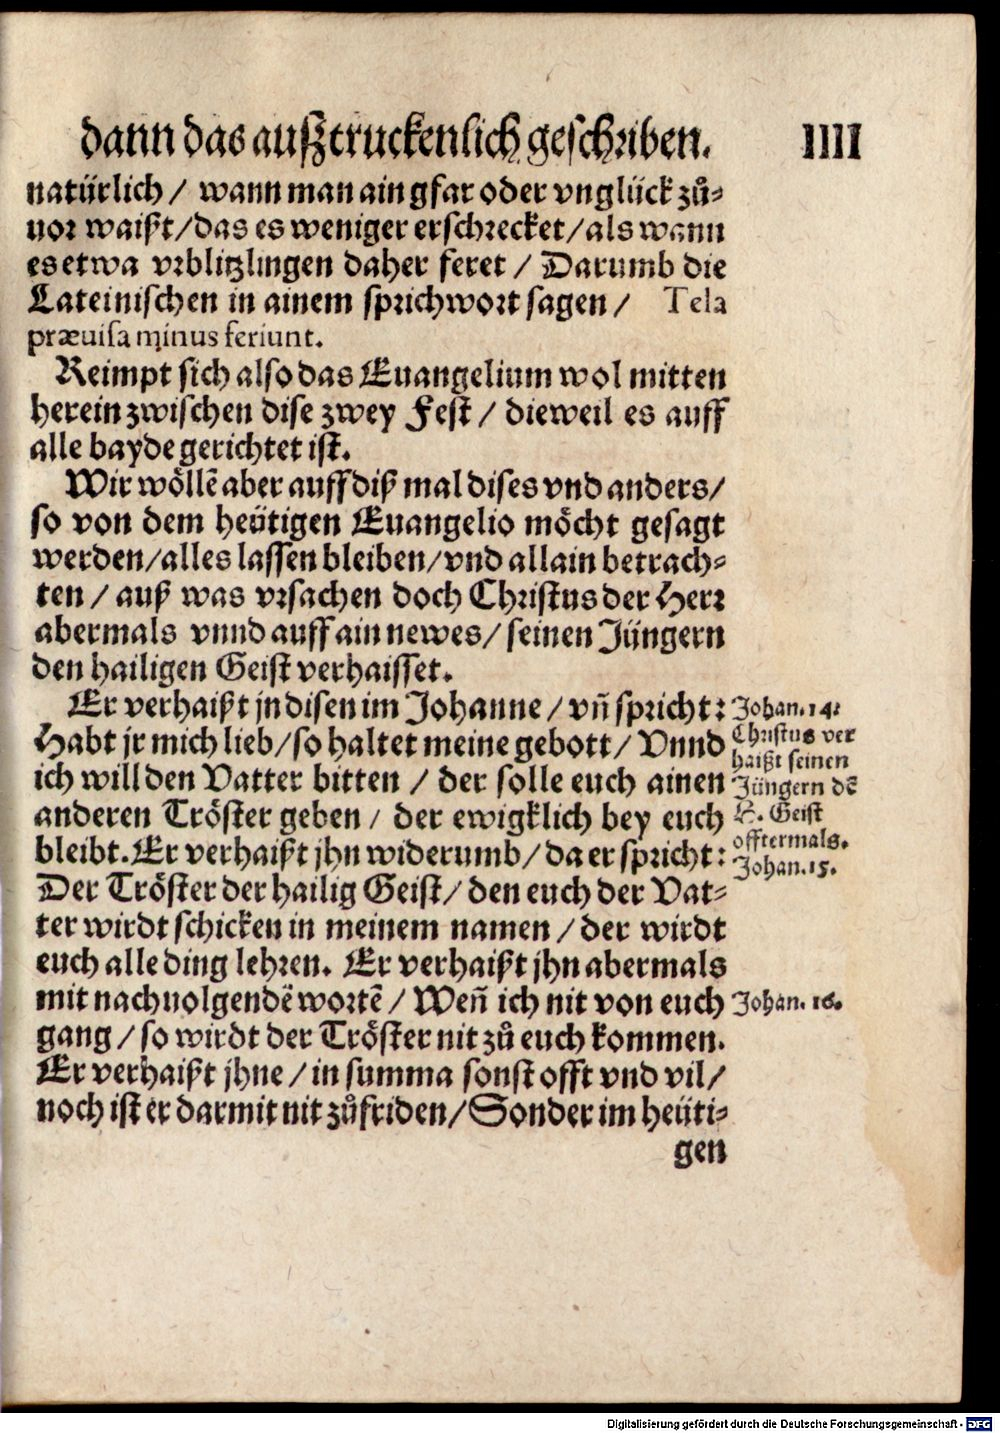 dann das außtruckenlich geschriben. IIII
natürlich / wann man ain gfar oder vnglück zů-
uor waißt / das es weniger erschrecket / als wann
es etwa vrblitzlingen daher feret / Darumb die
Lateinischen in ainem sprichwort sagen / Tela
præuisa minus feriunt.
Reimpt sich also das Euangelium wol mitten
herein zwischen dise zwey Fest / dieweil es auff
alle bayde gerichtet ist.
Wir wöllẽ aber auff diß mal dises vnd anders /
so von dem heütigen Euangelio möcht gesagt
werden / alles lassen bleiben / vnd allain betrach-
ten / auß was vrsachen doch Christus der Herr
abermals vnnd auff ain newes / seinen Jüngern
den hailigen Geist verhaisset.
Er verhaißt jn disen im Johanne / vñ spricht:
Habt jr mich lieb / so haltet meine gebott / Vnnd
ich will den Vatter bitten / der solle euch ainen
anderen Tröster geben / der ewigklich bey euch
bleibt. Er verhaißt jhn widerumb / da er spricht:
Der Tröster der hailig Geist / den euch der Vat-
ter wirdt schicken in meinem namen / der wirdt
euch alle ding lehren. Er verhaißt jhn abermals
mit nachuolgendẽ wortẽ / Weñ ich nit von euch
gang / so wirdt der Tröster nit zů euch kommen.
Er verhaißt jhne / in summa sonst offt vnd vil /
noch ist er darmit nit zůfriden / Sonder im heüti-
gen
Johan. 14.
Christus ver
haißt seinen
Jüngern dẽ
H. Geist
offtermals.
Johan. 15.
Johan. 16.
Digitalisierung gefördert durch die Deutsche Forschungsgemeinschaft - DFG